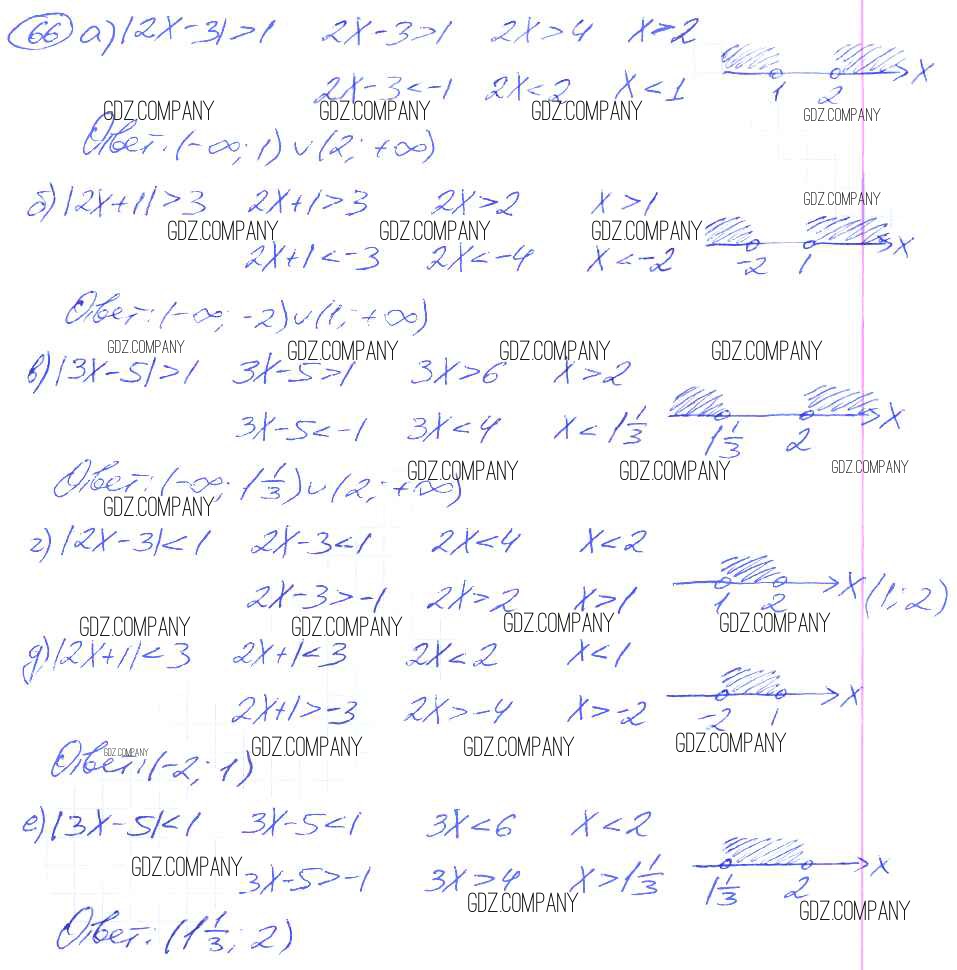 66 а) |2x-3|>1 2x-3>1 2x>4 x>2
2x-3<-1 2x<2 x<1 1 2 x
GDZ.COMPANY GDZ.COMPANY GDZ.COMPANY GDZ.COMPANY
Ответ: (-∞; 1) ∪ (2; +∞)
б) |2x+1|>3 2x+1>3 2x>2 x>1 GDZ.COMPANY
GDZ.COMPANY GDZ.COMPANY GDZ.COMPANY
2x+1<-3 2x<-4 x<-2 -2 1 x
Ответ: (-∞; -2) ∪ (1; +∞)
GDZ.COMPANY GDZ.COMPANY GDZ.COMPANY GDZ.COMPANY
в) |3x-5|>1 3x-5>1 3x>6 x>2
3x-5<-1 3x<4 x<1 1/3 1 1/3 2 x
GDZ.COMPANY GDZ.COMPANY GDZ.COMPANY
Ответ: (-∞; 1 1/3) ∪ (2; +∞)
GDZ.COMPANY
г) |2x-3|<1 2x-3<1 2x<4 x<2
2x-3>-1 2x>2 x>1 1 2 x (1; 2)
GDZ.COMPANY GDZ.COMPANY GDZ.COMPANY GDZ.COMPANY
д) |2x+1|<3 2x+1<3 2x<2 x<1
2x+1>-3 2x>-4 x>-2 -2 1 x
GDZ.COMPANY GDZ.COMPANY GDZ.COMPANY GDZ.COMPANY
Ответ: (-2; 1)
е) |3x-5|<1 3x-5<1 3x<6 x<2
GDZ.COMPANY
3x-5>-1 3x>4 x>1 1/3 1 1/3 2 x
GDZ.COMPANY GDZ.COMPANY
Ответ: (1 1/3; 2)